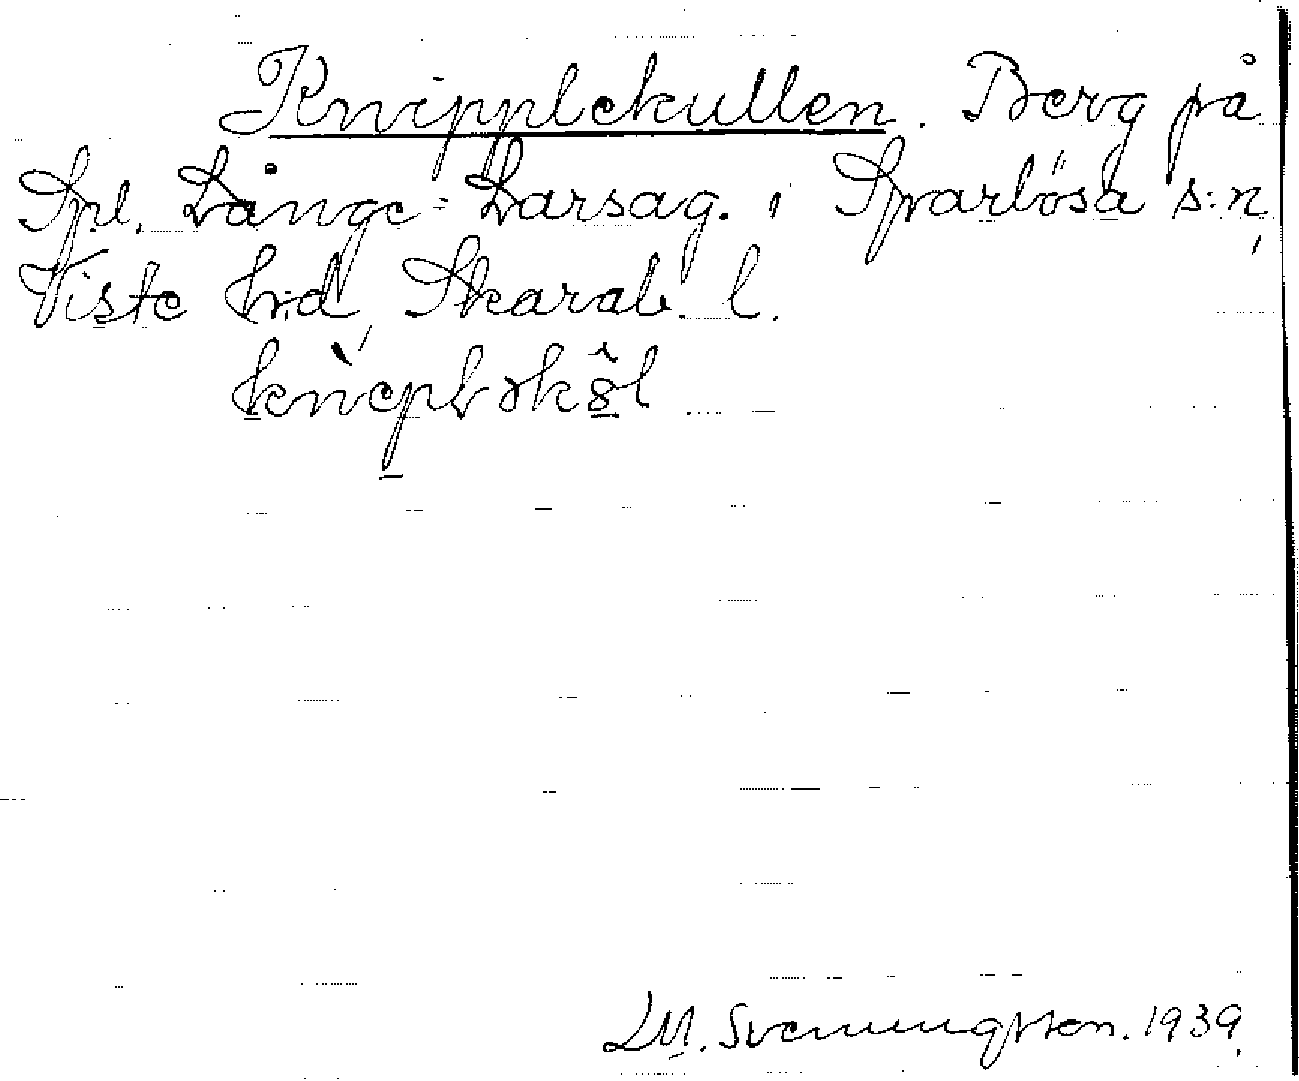 Knipplekullen. Berg på
Spl. Långe-Larsag. i Sparlösa s:n,
Viste hd, Skarab. l.
L.M. Svenungsson. 1939.